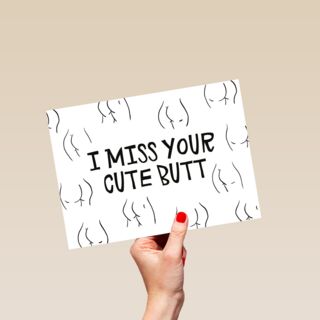 I MISS YOUR
CUTE BUTT